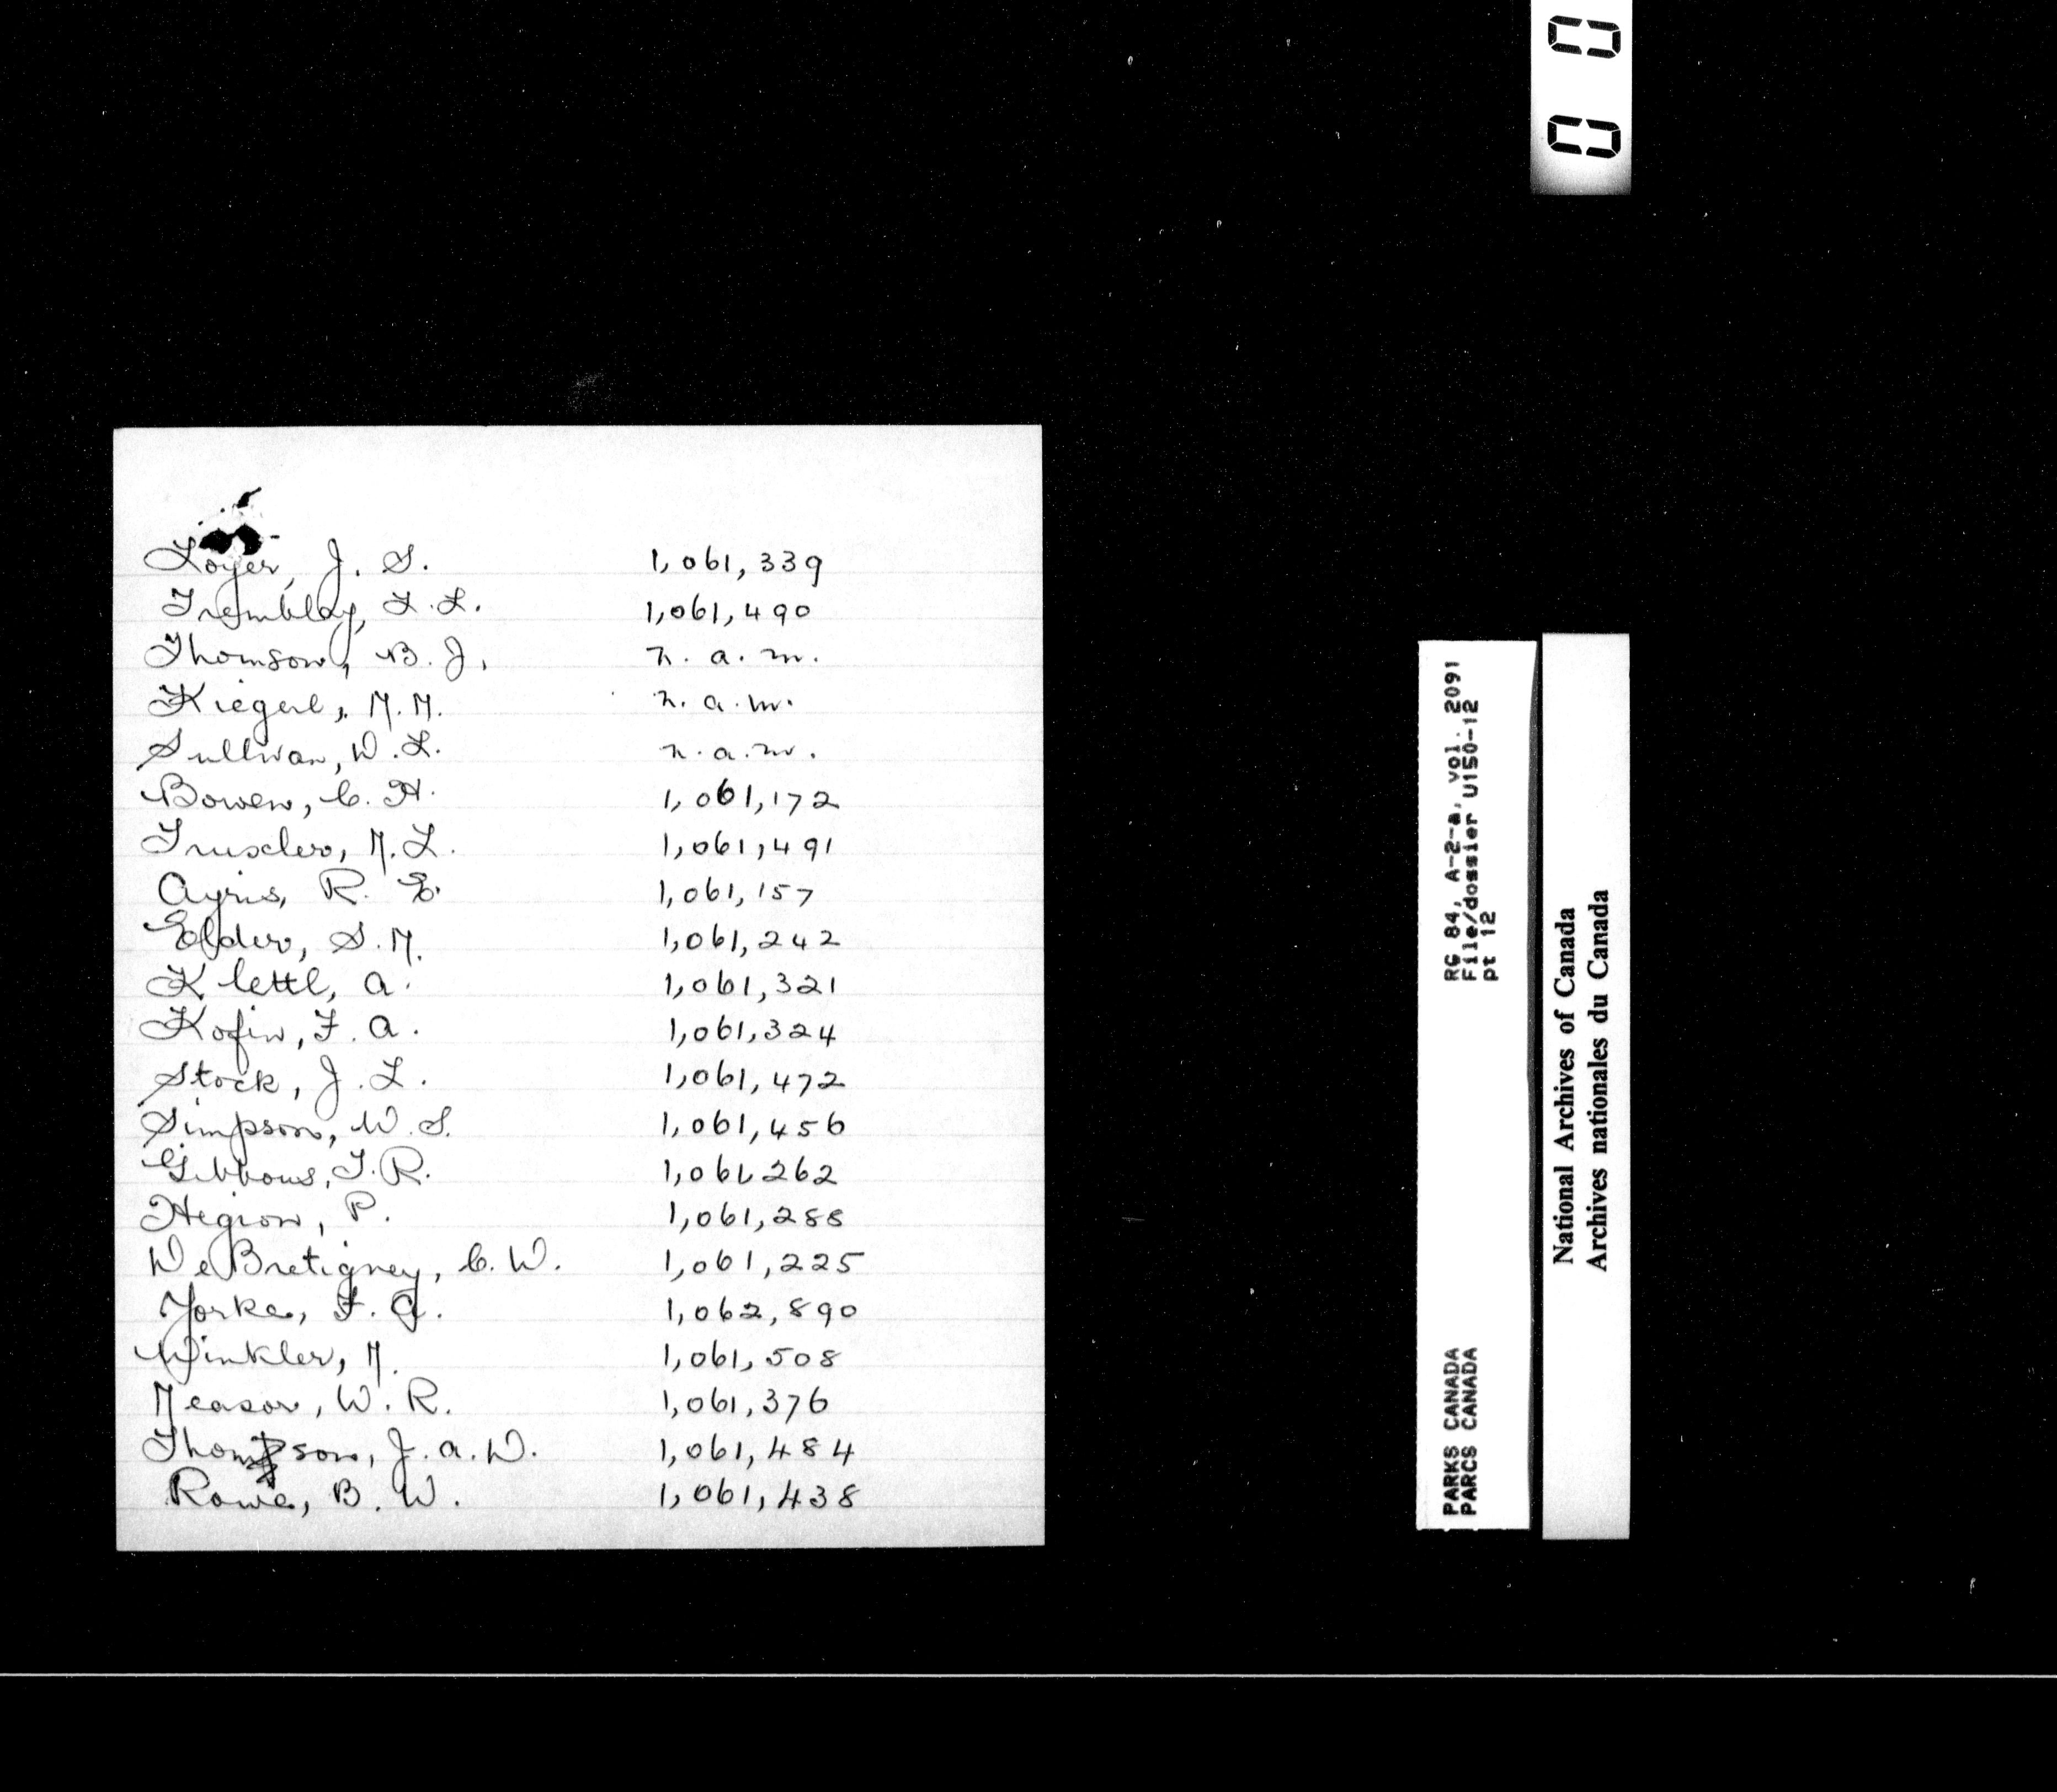 00
Loyer, J. S. 1,061,339
Tremblay, L. L. 1,061,490
Thomson, B. J. n. a. m.
Kiegerl, M. M. n. a. m.
Sullivan, W. L. n. a. m.
Bowen, C. H. 1,061,172
Truscler, M. L. 1,061,491
Ayris, R. E. 1,061,157
Elder, S. M. 1,061,242
Klettl, A. 1,061,321
Kofin, F. A. 1,061,324
Stock, J. L. 1,061,472
Simpson, W. S. 1,061,456
Gibbons, T. R. 1,061,262
Hegion, P. 1,061,288
De Bretigney, C. W. 1,061,225
Yorke, F. G. 1,062,890
Winkler, M. 1,061,508
Measor, W. R. 1,061,376
Thompson, J. A. W. 1,061,484
Rowe, B. W. 1,061,438
RG 84, A-2-a, vol. 2091
File/dossier U150-12
pt 12
PARKS CANADA
PARCS CANADA
National Archives of Canada
Archives nationales du Canada